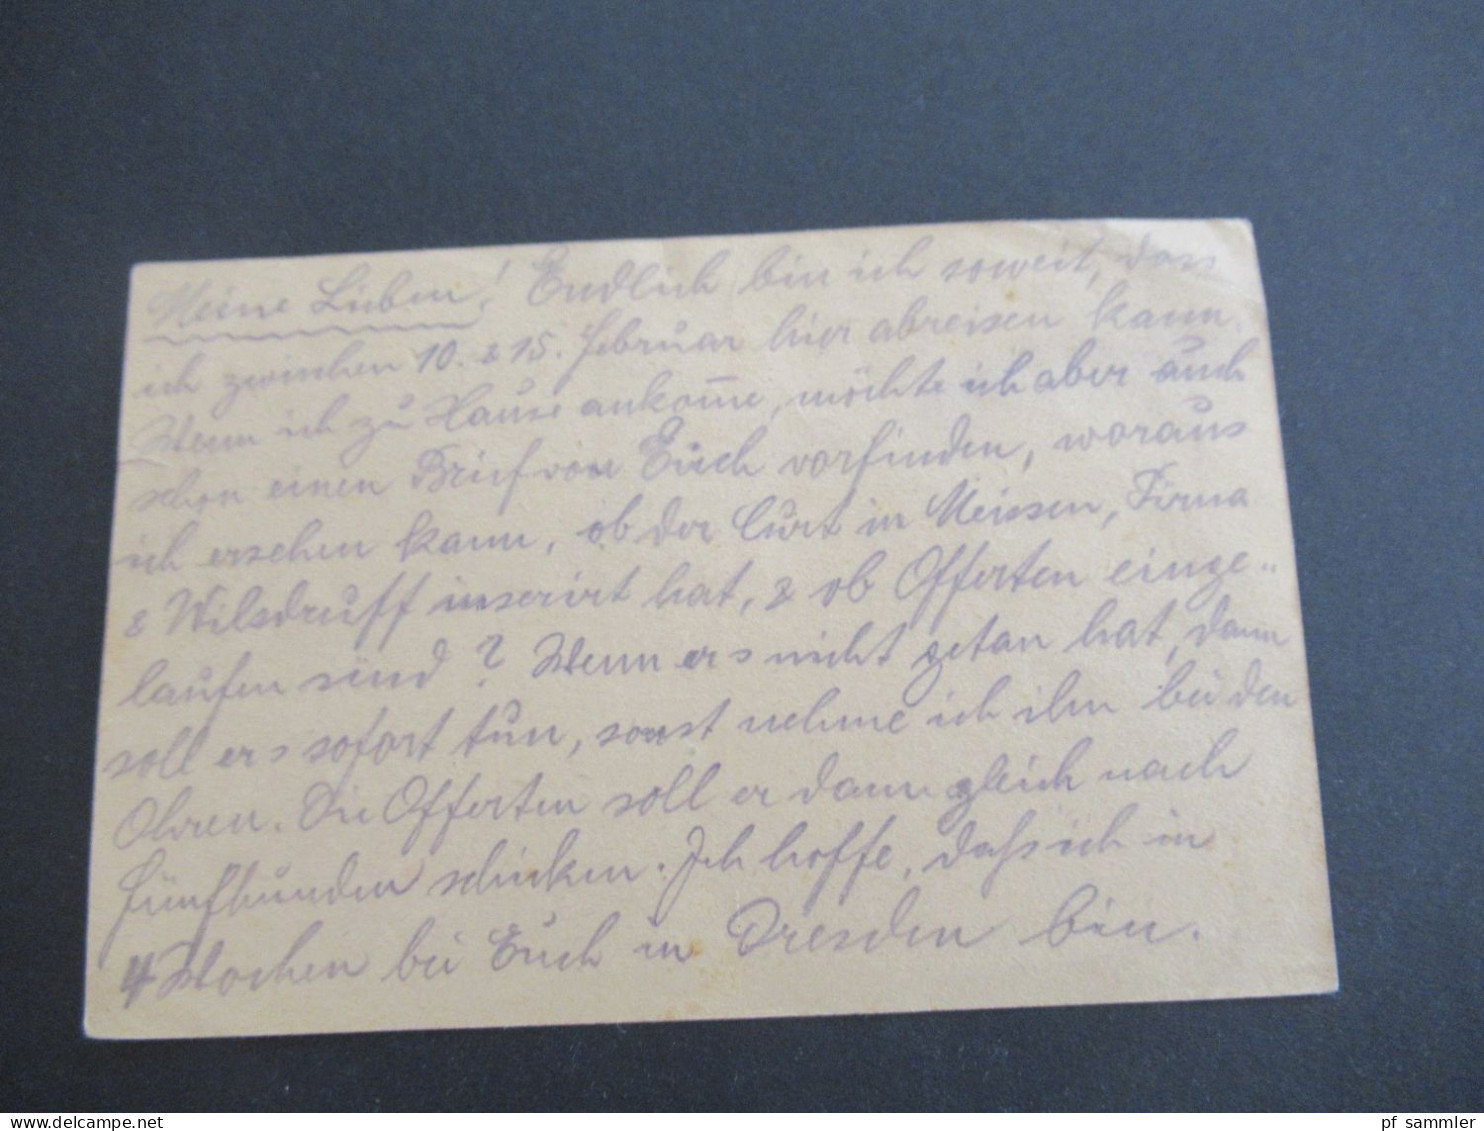 Meine Lieben! Endlich bin ich soweit, dass
ich zwischen 10. & 15. Februar hier abreisen kann.
Wenn ich zu Hause ankom̅e, möchte ich aber auch
schon einen Brief von Euch vorfinden, woraus
ich ersehen kann, ob der Curt in Meissen, Pirna
& Wilsdruff inserirt hat, & ob Offerten einge-
laufen sind? Wenn er's nicht getan hat, dann
soll er's sofort tun, sonst nehme ich ihn bei den
Ohren. Die Offerten soll er dann gleich nach
Fünfhunden schicken. Ich hoffe, daß ich in
4 Wochen bei Euch in Dresden bin.
www.delcampe.net
pf_sammler